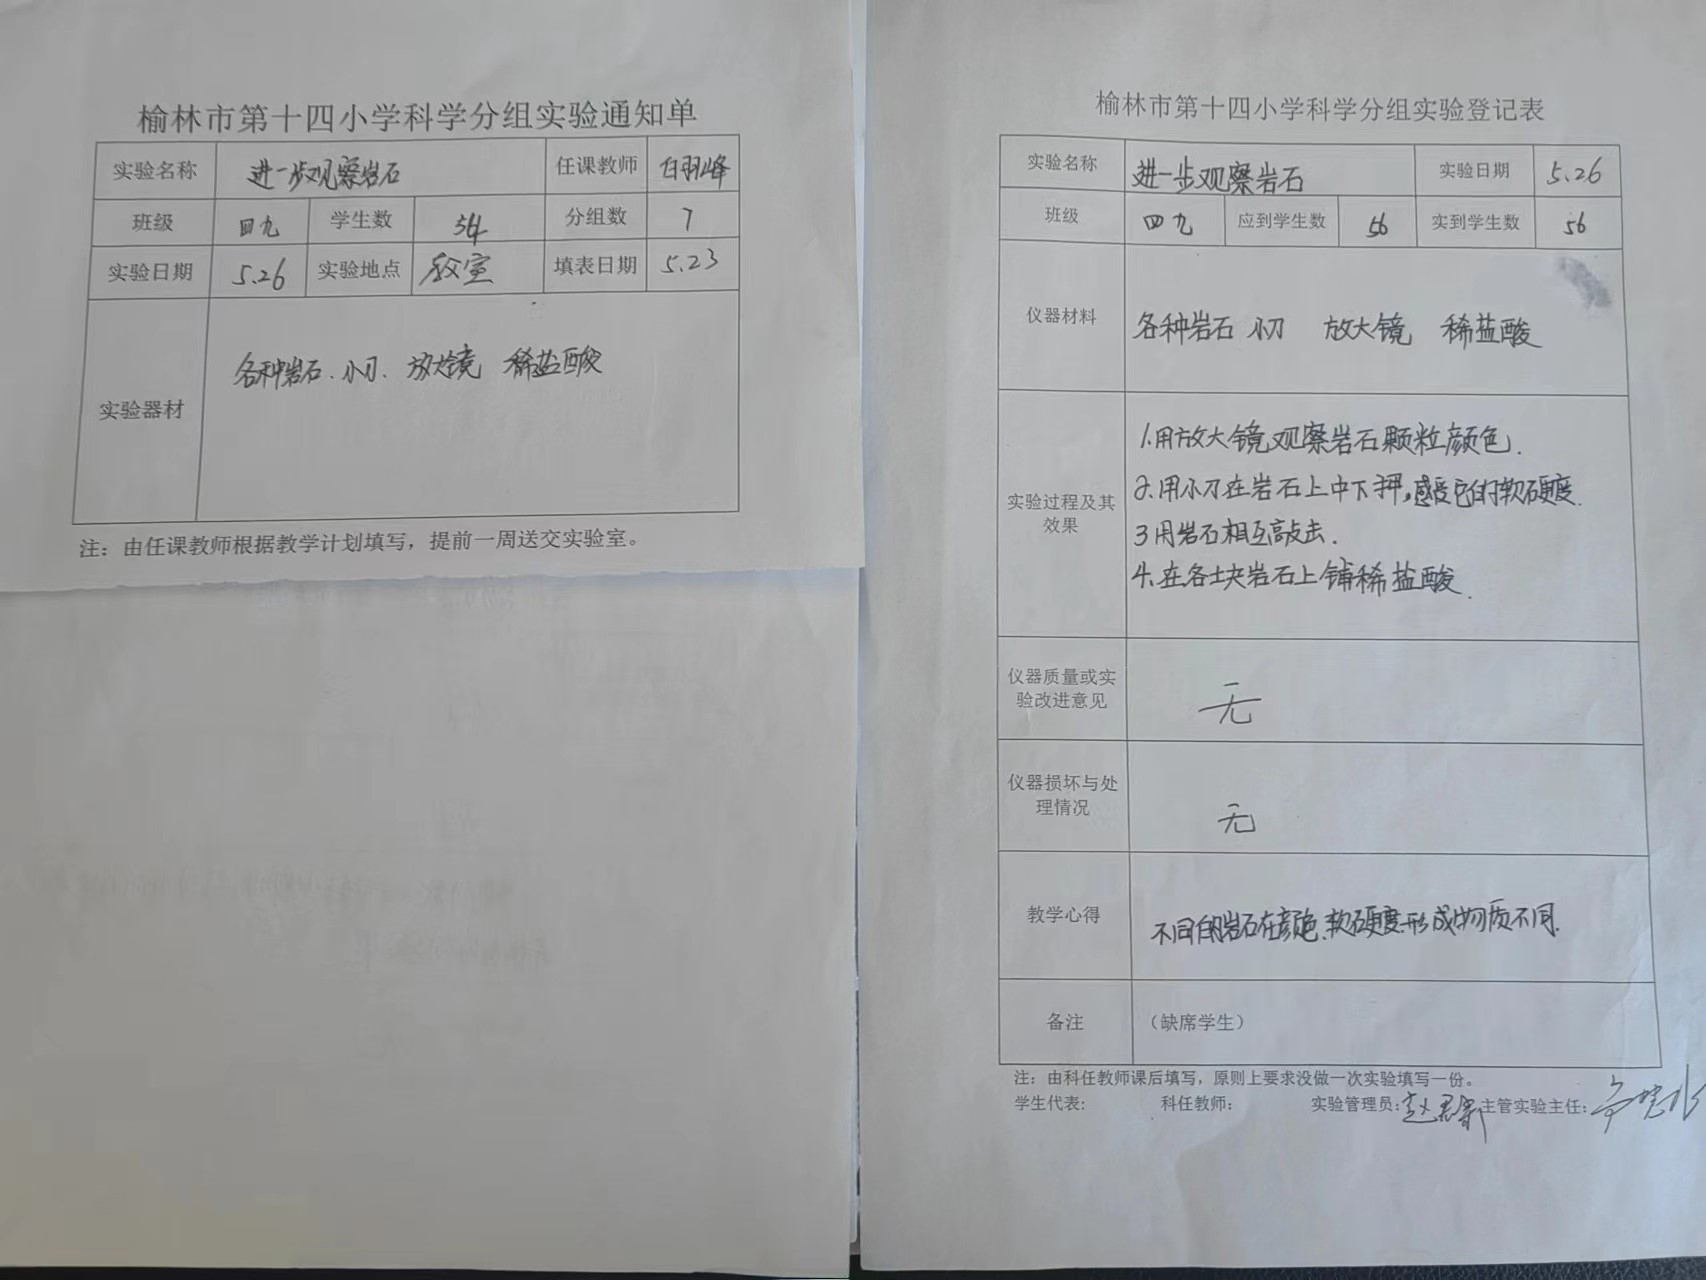 榆林市第十四小学科学分组实验通知单
实验名称 进一步观察岩石 任课教师 白羽峰
班级 四九 学生数 54 分组数 7
实验日期 5.26 实验地点 教室 填表日期 5.23
实验器材 各种岩石、小刀、放大镜 稀盐酸
注：由任课教师根据教学计划填写，提前一周送交实验室。
榆林市第十四小学科学分组实验登记表
实验名称 进一步观察岩石 实验日期 5.26
班级 四九 应到学生数 56 实到学生数 56
仪器材料 各种岩石 小刀 放大镜 稀盐酸
实验过程及其效果
1.用放大镜观察岩石颗粒颜色.
2.用小刀在岩石上中下，感受它的软硬度.
3用岩石相互敲击.
4.在各块岩石上铺稀盐酸.
仪器质量或实验改进意见 无
仪器损坏与处理情况 无
教学心得 不同的岩石在颜色、软硬度形成物质不同.
备注 （缺席学生）
注：由科任教师课后填写，原则上要求没做一次实验填写一份。
学生代表： 科任教师： 实验管理员： 主管实验主任：